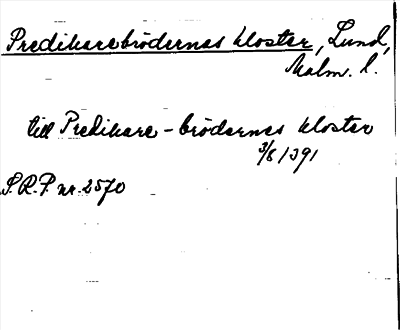 Predikarebrödernas kloster, Lund,
Malm. l.
till Predikare-brödernes kloster
3/8 1391
S.R.P. nr. 2570